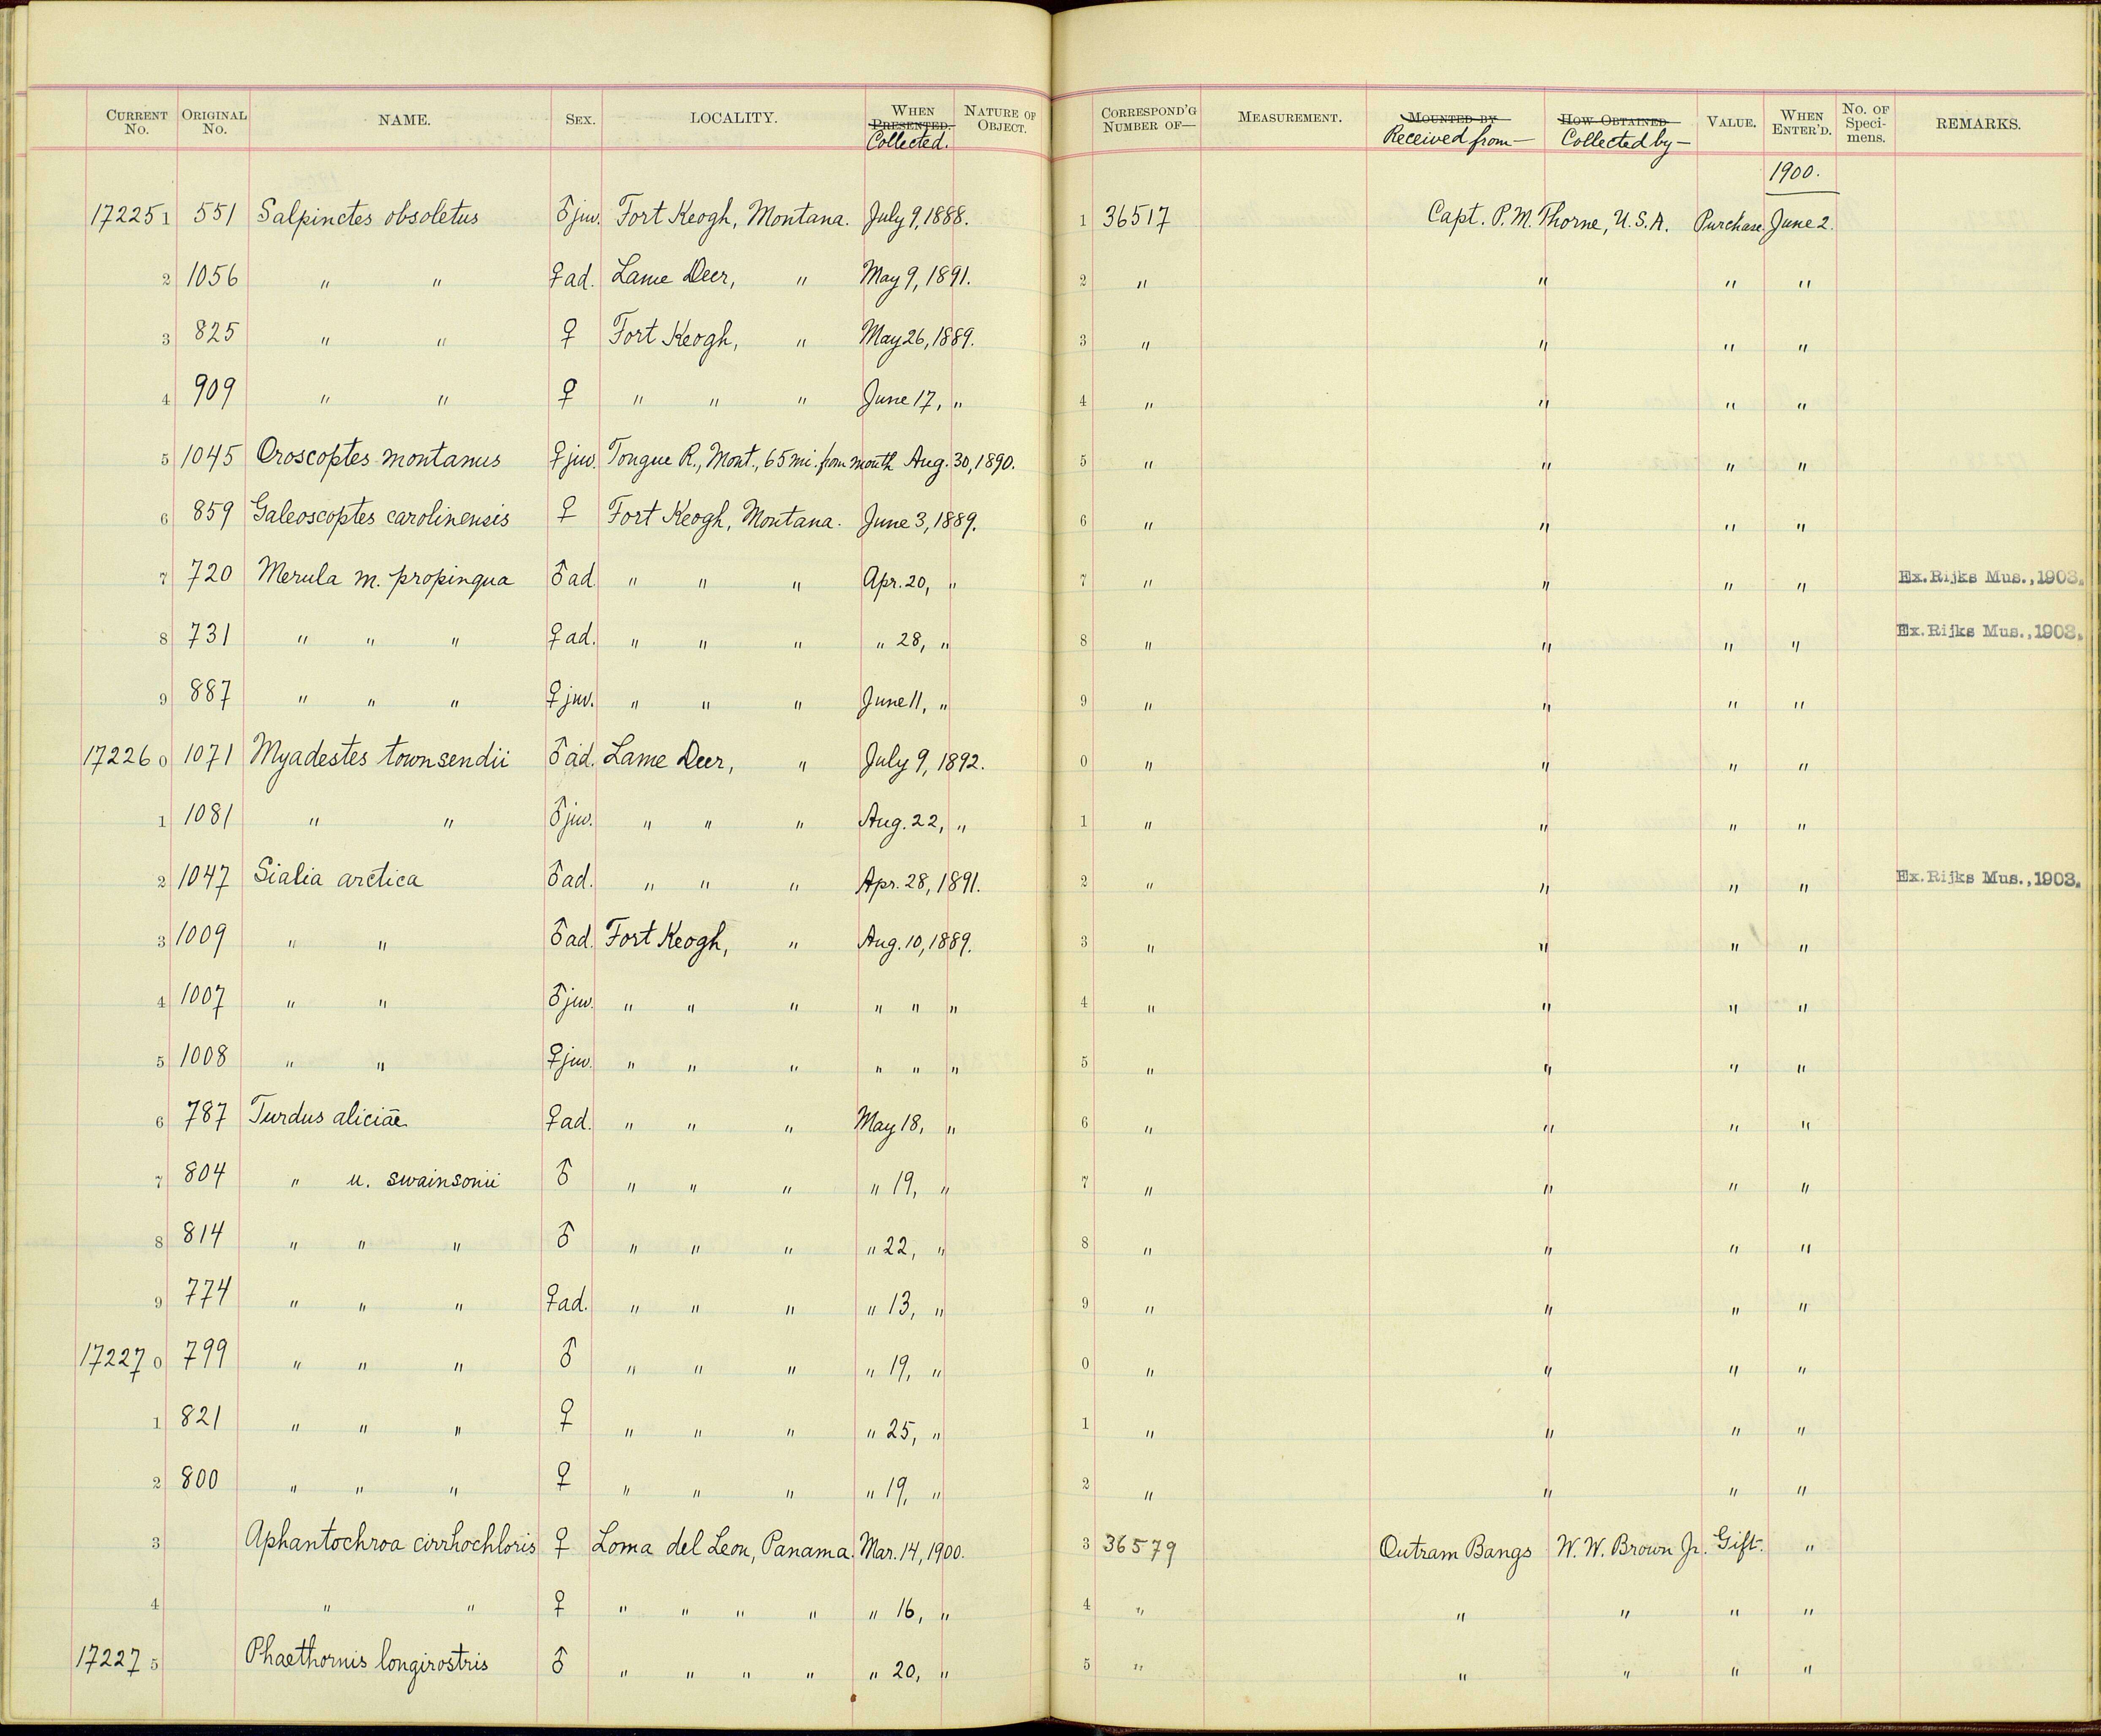 CURRENT No. ORIGINAL No. NAME. SEX. LOCALITY. WHEN PRESENTED. Collected. NATURE OF OBJECT. CORRESPOND'G NUMBER OF— MEASUREMENT. MOUNTED BY Received from— HOW OBTAINED Collected by— VALUE. WHEN ENTER'D. No. OF Speci-mens. REMARKS.
1900.
17225 1 551 Salpinctes obsoletus ♂ juv. Fort Keogh, Montana. July 9, 1888. 1 36517 Capt. P. M. Thorne, U.S.A. Purchase. June 2.
2 1056 " " ♀ ad. Lame Deer, " May 9, 1891. 2 " " " "
3 825 " " ♀ Fort Keogh, " May 26, 1889. 3 " " " "
4 909 " " ♀ " " " June 17, " 4 " " " "
5 1045 Oroscoptes montanus ♀ juv. Tongue R., Mont., 65 mi. from mouth Aug. 30, 1890. 5 " " " "
6 859 Galeoscoptes carolinensis ♀ Fort Keogh, Montana. June 3, 1889. 6 " " " "
7 720 Merula m. propinqua ♂ ad. " " " Apr. 20, " 7 " " " " Ex. Rijks Mus., 1903.
8 731 " " " ♀ ad. " " " " 28, " 8 " " " " Ex. Rijks Mus., 1903.
9 887 " " " ♀ juv. " " " June 11, " 9 " " " "
17226 0 1071 Myadestes townsendii ♂ ad. Lame Deer, " July 9, 1892. 0 " " " "
1 1081 " " ♂ juv. " " " Aug. 22, " 1 " " " "
2 1047 Sialia arctica ♂ ad. " " " Apr. 28, 1891. 2 " " " " Ex. Rijks Mus., 1903.
3 1009 " " ♂ ad. Fort Keogh, " Aug. 10, 1889. 3 " " " "
4 1007 " " ♂ juv. " " " " " " 4 " " " "
5 1008 " " ♀ juv. " " " " " " 5 " " " "
6 787 Turdus aliciæ ♀ ad. " " " May 18, " 6 " " " "
7 804 " u. swainsonii ♂ " " " " 19, " 7 " " " "
8 814 " " " ♂ " " " " 22, " 8 " " " "
9 774 " " " ♀ ad. " " " " 13, " 9 " " " "
17227 0 799 " " " ♂ " " " " 19, " 0 " " " "
1 821 " " " ♀ " " " " 25, " 1 " " " "
2 800 " " " ♀ " " " " 19, " 2 " " " "
3 Aphantochroa cirrhochloris ♀ Loma del Leon, Panama. Mar. 14, 1900. 3 36579 Outram Bangs W. W. Brown Jr. Gift. "
4 " " ♀ " " " " " 16, " 4 " " " " "
17227 5 Phaethornis longirostris ♂ " " " " " 20, " 5 " " " " "